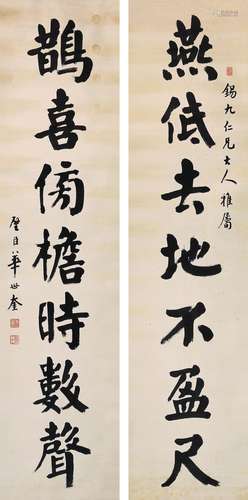 燕低去地不盈尺
錫九仁兄大人雅屬
鵲喜傍檐時數聲
華世奎